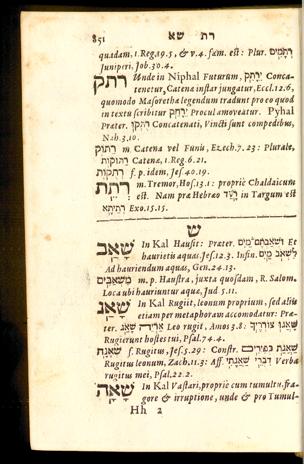 851 רת שא
quadam, 1. Reg. 19. 5, & v. 4. fœm. est: Plur. רְתָמִים
Juniperi, Job. 30. 4.
רתק Unde in Niphal Futurum, יֵרָתֵק Conca-
tenetur, Catena instar jungatur, Eccl. 12. 6,
quomodo Masorethæ legendum tradunt pro eo quod
in textu scribitur יִרְחַק Procul amoveatur. Pyhal
Præter. רֻתְּקוּ Concatenati, Vincti sunt compedibus,
Nah. 3. 10.
רַתּוֹק m. Catena vel Funis, Ezech. 7. 23: Plurale,
רַתּוּקוֹת Catenæ, 1. Reg. 6. 21.
רְתֻקוֹת f. p. idem, Jes. 40. 19.
רְתֵת m. Tremor, Hos. 13. 1: propriè Chaldaicum
est. Nam pro Hebræo in Targum est
רְתִיתָא Exo. 15. 15.
ש
שָׁאַב In Kal Hausit: Præter. וּשְׁאַבְתֶּם־מַיִם Et
haurietis aquas, Jes. 12. 3. Infin. לִשְׁאֹב מַיִם
Ad hauriendum aquas, Gen. 24. 13.
מַשְׁאַבִּים m. p. Haustra, juxta quosdam, R. Salom.
Loca ubi hauriuntur aquæ, Jud. 5. 11.
שָׁאַג In Kal Rugiit, leonum proprium, sed aliis
etiam per metaphoram accomodatur: Præ-
ter. אַרְיֵה שָׁאָג Leo rugit, Amos 3. 8: שָׁאֲגוּ צוֹרְרֶיךָ
Rugierunt hostes tui, Psal. 74. 4.
שְׁאָגָה f. Rugitus, Jes. 5. 29: Constr. שַׁאֲגַת כְּפִירִים
Rugitus leonum, Zach. 11. 3: Aff. דִּבְרֵי שַׁאֲגָתִי Verba
rugitus mei, Psal. 22. 2.
שָׁאָה In Kal Vastari, propriè cum tumultu, fra-
gore & irruptione, unde & pro Tumul-
Hh 2